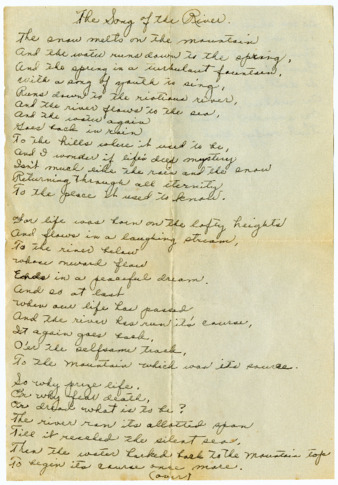 The Song of the River.
The snow melts on the mountain
And the water runs down to the spring,
And the spring in a turbulent fountain,
With a song of youth to sing,
Runs down to the riotous river,
And the river flows to the sea,
And the water again
Goes back in rain
To the hills where it used to be,
And I wonder if life's deep mystery
Isn't much like the rain and the snow
Returning through all eternity
To the place it used to know.
For life was born on the lofty heights
And flows in a laughing stream,
To the river below
whose onward flow
Ends in a peaceful dream.
And so at last
when our life has passed
And the river has run it's course,
It again goes back,
O'er the selfsame track,
To the mountain which was it's source.
So why prize life.
Or why fear death,
Or dread what is to be?
The river ran its allotted span
Till it reached the silent sea,
Then the water harked back to the mountain top
To begin its course once more.
(over)